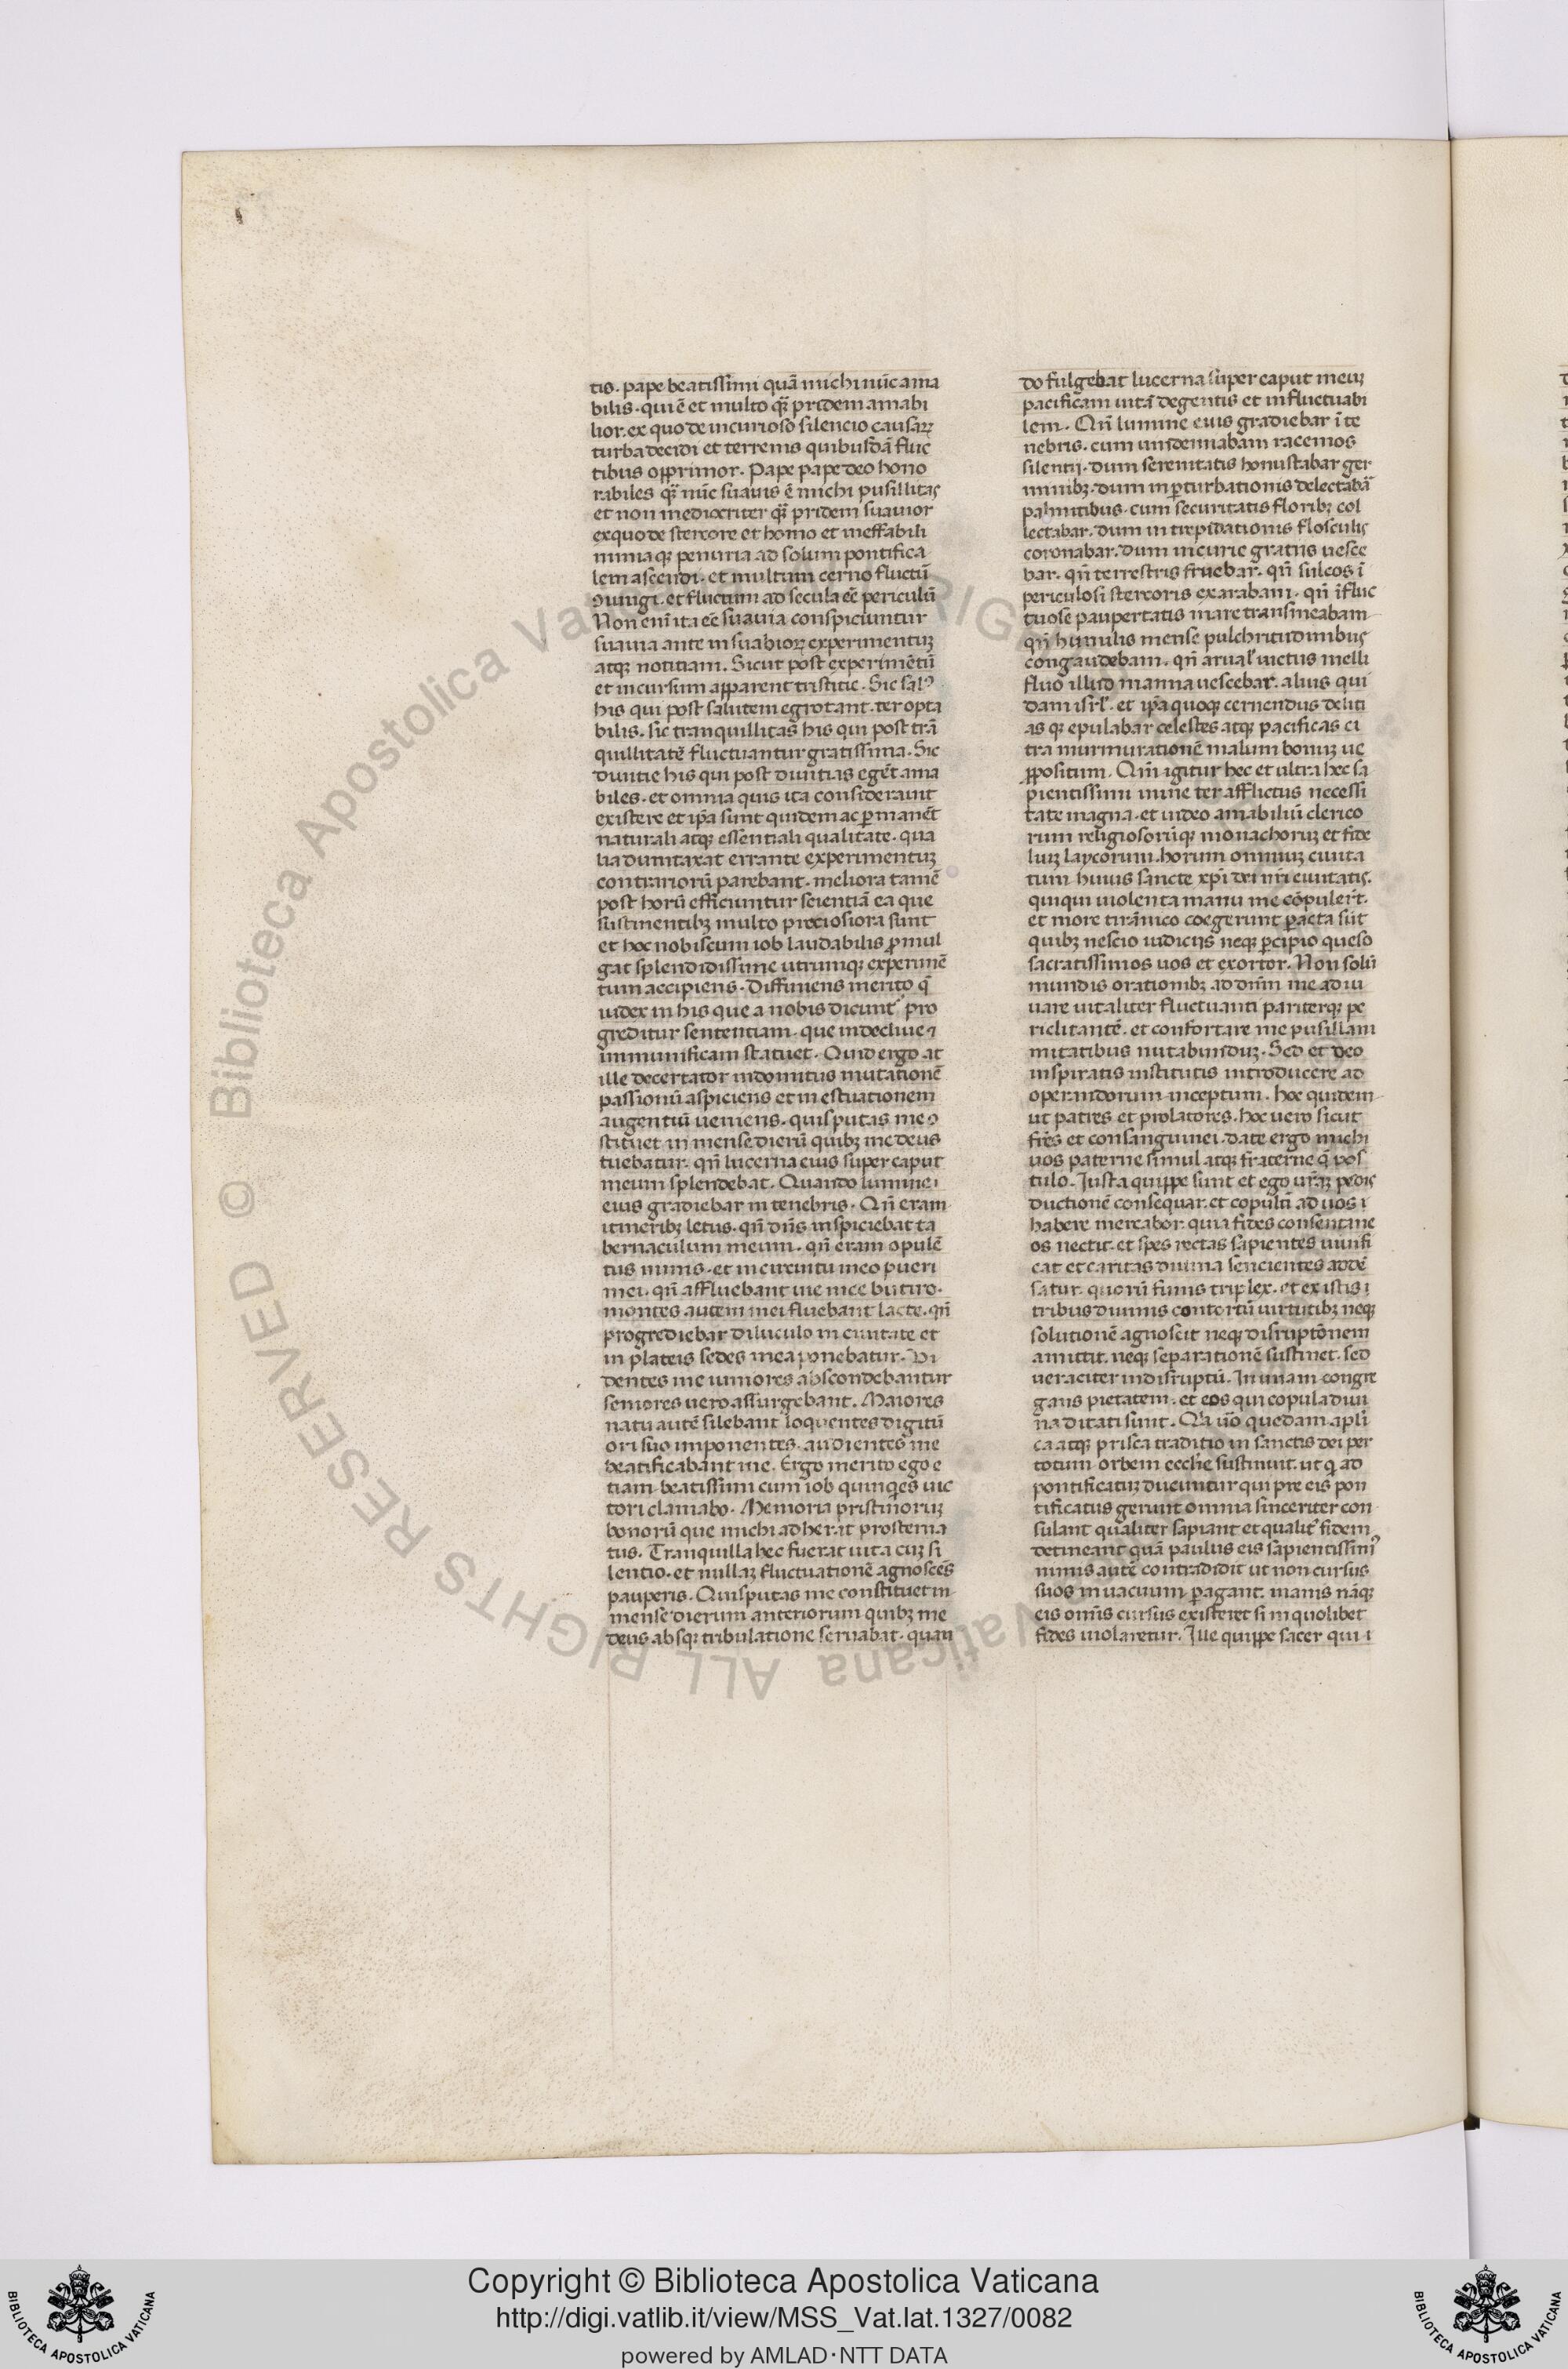 tis. pape beatissimi quā michi nūc ama
bilis. qui ē et multo q̄ȝ pridem amabi
lior. ex quo de incurioso silencio causarȝ
turba decidi et terrenis quibusdā fluc
tibus opprimor. Pape pape deo hono
rabiles q̄ȝ nūc suauis ē michi pusillitas
et non mediocriter q̄ȝ pridem suauior
ex quo de stercore et homo et ineffabili
nimiaqȝ penuria ad solum pontifica
lem ascendi. et multum cerno fluctū
ɔiungi. et fluctum ad secula eē periculū
Non enī ita eē suauia conspiciuntur
suauia ante insuabiorȝ experimentuȝ
atqȝ notitiam. Sicut post experimētū
et incursum apparent tristitie. Sic salꝰ
his qui post salutem egrotant. ter opta
bilis. sic tranquillitas his qui post trā
quillitatē fluctuantur gratissima. Sic
diuitie his qui post diuitias egēt ama
biles. et omnia quis ita considerauit
existere et ip̄a sunt quidem ac ꝑmanēt
naturali atqȝ essentiali qualitate. qua
lia dumtaxat errante experimentuȝ
contrariorū parebant. meliora tamē
post horū efficiuntur scientiā ea que
sustinentibȝ multo preciosiora sunt
et hoc nobiscum iob laudabilis ꝓmul
gat splendidissime utrumqȝ experimē
tum accipiens. Diffiniens merito q̄
iudex in his que a nobis dicunt᷑ pro
greditur sententiam. que indecliuē ⁊
immunificam statuet. Quid ergo at
ille decertator indomitus mutationē
passionū aspiciens et in estuationem
augentiū ueniens. quis putas me ɔ
stituet in mense dierū quibȝ me deus
tuebatur. qn̄ lucerna eius super caput
meum splendebat. Quando lumine
eius gradiebar in tenebris. Qn̄ eram
itineribȝ letus. qn̄ dn̄s inspiciebat ta
bernaculum meum. qn̄ eram opulē
tus nimis. et in circuitu meo pueri
mei. qn̄ affluebant uie mee butiro.
montes autem mei fluebant lacte. qn̄
progrediebar diluculo in ciuitate et
in plateis sedes mea ponebatur. Vi
dentes me iuniores abscondebantur
seniores uero assurgebant. Maiores
natu autē silebant loquentes digitū
ori suo imponentes. audientes me
beatificabant me. Ergo merito ego e
tiam beatissimi cum iob quinqies uic
tori clamabo. Memoria pristinoruȝ
bonorū que michi adherat prosterna
tus. Tranquilla hec fuerat uita cuȝ si
lentio. et nullaȝ fluctuationē agnoscēs
pauperis. Quis putas me constituet in
mense dierum anteriorum quibȝ me
deus absqȝ tribulatione seruabat. quan
do fulgebat lucerna super caput meuȝ
pacificam uitā degentis et influctuabi
lem. Qn̄ lumine euis gradiebar ī te
nebris. cum uindemiabam racemos
silentij. dum serenitatis honustabar ger
minibȝ. dum inꝑturbationis delectabā
palmitibus. cum securitatis floribȝ col
lectabar. dum intrepidationis flosculis
coronabar. dum incurie gratiis uesce
bar. qn̄ terrestris fruebar. qn̄ sulcos ī
periculosi stercoris exarabam. qn̄ īfluc
tuose paupertatis mare transmeabam
qn̄ humilis mense pulchritudinibus
congaudebam. qn̄ arual᷑ uictus melli
fluo illud manna uescebar. alius qui
dam isrl᷑. et ip̄a quoqȝ cernendus deliti
as qȝ epulabar celestes atqȝ pacificas ci
tra murmurationē malum bonuȝ ue
ꝓpositum. Qm̄ igitur hec et ultra hec sa
pientissimi mine ter afflictus necessi
tate magna. et uideo amabiliū clerico
rum religiosorūqȝ monachoruȝ et fide
liuȝ laycorum. horum omniuȝ ciuita
tum huius sancte xp̄i dei nr̄i ciuitatis.
quiqui uiolenta manu me cōpulerīt.
et more tirānico coegerunt ꝑacta sūt
quibȝ nescio iudiciis neqȝ ꝑcipio queso
sacratissimos uos et exortor. Non solū
mundis orationibȝ ad dn̄m me ad iu
uare uitaliter fluctuanti pariterqȝ pe
riclitantē. et confortare me pusillani
mitatibus nutabunduȝ. Sed et deo
inspiratis institutis introducere ad
operandorum inceptum. hoc quidem
ut patres et prolatores. hoc uero sicut
fr̄es et consanguinei. date ergo michi
uos paterne simul atqȝ fraterne q̄ pos
tulo. Justa quippe sunt et ego ur̄aȝ pedis
ductionē consequar. et copulā ad uos ī
habere merebor. quia fides consentane
os nectit. et spes rectas sapientes uiuifi
cat et caritas diuina sencientes addē
satur. quorū funis triplex. et ex istis ī
tribus diuinis contortū uirtutibȝ neqȝ
solutionē agnoscit neqȝ disruptōnem
amittit. neqȝ separationē sustinet. sed
ueraciter indisruptū. In unam congre
gans pietatem. et eos qui copula diui
na ditati sunt. Qa uō quedam apl̄i
ca atqȝ prisca traditio in sanctis dei per
totum orbem eccl̄ie sustinuit. ut q̄ ad
pontificatuȝ ducuntur qui pre eis pon
tificatus gerunt omnia sinceriter con
sulant qualiter sapiant et qualit᷑ fidem
detineant quā paulus eis sapientissimꝰ
nimis autē contradidit ut non cursus
suos in uacuum ꝑagant. inanis nāqȝ
eis omīs cursus existeret si in quolibet
fides uiolaretur. Ille quippe sacer qui ī
Copyright © Biblioteca Apostolica Vaticana
http://digi.vatlib.it/view/MSS_Vat.lat.1327/0082
powered by AMLAD·NTT DATA
BIBLIOTECA APOSTOLICA VATICANA
BIBLIOTECA APOSTOLICA VATICANA
© Biblioteca Apostolica Vaticana ALL RIGHTS RESERVED